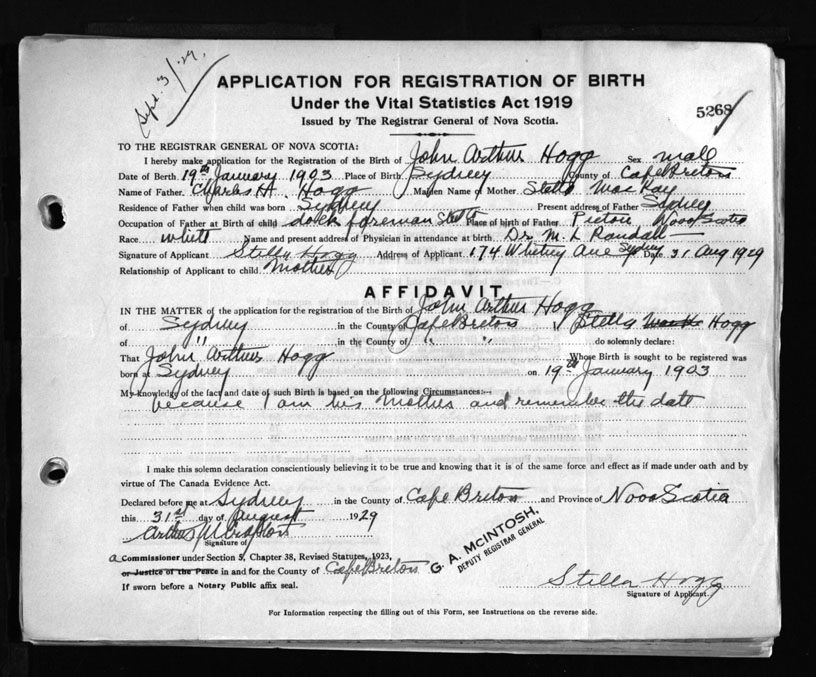 Sept. 3/29.
APPLICATION FOR REGISTRATION OF BIRTH
Under the Vital Statistics Act 1919
Issued by The Registrar General of Nova Scotia.
5268
TO THE REGISTRAR GENERAL OF NOVA SCOTIA:
I hereby make application for the Registration of the Birth of John Arthur Hogg Sex male
Date of Birth 19th January 1903 Place of Birth Sydney County of Cape Breton
Name of Father Charles H. Hogg Maiden Name of Mother Stella MacKay
Residence of Father when child was born Sydney Present address of Father Sydney
Occupation of Father at Birth of child dock foreman Place of birth of Father Pictou Nova Scotia
Race white Name and present address of Physician in attendance at birth Dr. M. L Randall
Signature of Applicant Stella Hogg Address of Applicant 174 Whitney Ave Sydney Date 31 Aug 1929
Relationship of Applicant to child Mother
AFFIDAVIT
IN THE MATTER of the application for the registration of the Birth of John Arthur Hogg
of Sydney in the County of Cape Breton I Stella Hogg
of " in the County of " " do solemnly declare:
That John Arthur Hogg Whose Birth is sought to be registered was
born at Sydney on 19th January 1903
My knowledge of the fact and date of such Birth is based on the following Circumstances:--
because I am his Mother and remember the date
I make this solemn declaration conscientiously believing it to be true and knowing that it is of the same force and effect as if made under oath and by
virtue of The Canada Evidence Act.
Declared before me at Sydney in the County of Cape Breton and Province of Nova Scotia
this 31st day of August 1929
Arthur
Signature of
G. A. McINTOSH,
DEPUTY REGISTRAR GENERAL
a Commissioner under Section 5, Chapter 38, Revised Statutes, 1923,
or Justice of the Peace in and for the County of Cape Breton
If sworn before a Notary Public affix seal.
Stella Hogg
Signature of Applicant.
For Information respecting the filling out of this Form, see Instructions on the reverse side.